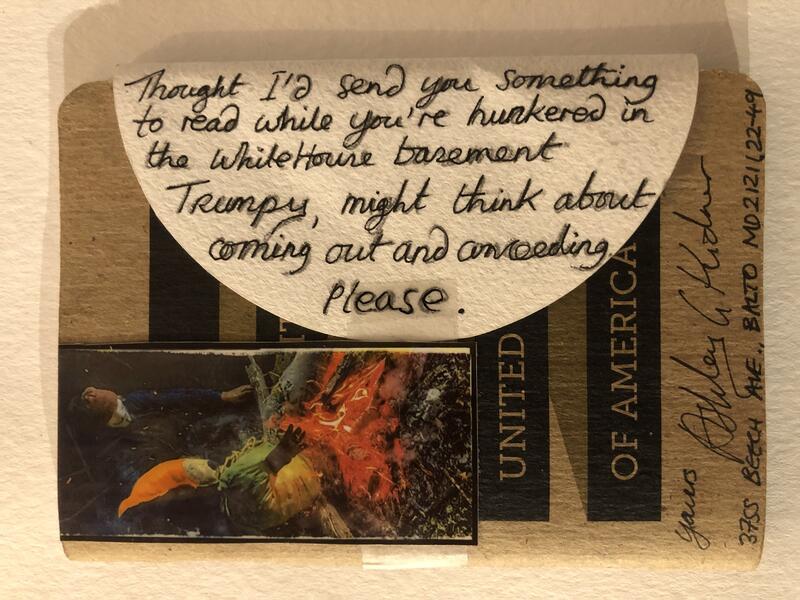 Thought I'd send you something
to read while you're hunkered in
the WhiteHouse basement
Trumpy, might think about
coming out and conceeding
Please.
UNITED
OF AMERICA
yours Ashley G Kidner
3755 BEECH AVE., BALTO MD21211, 22-49